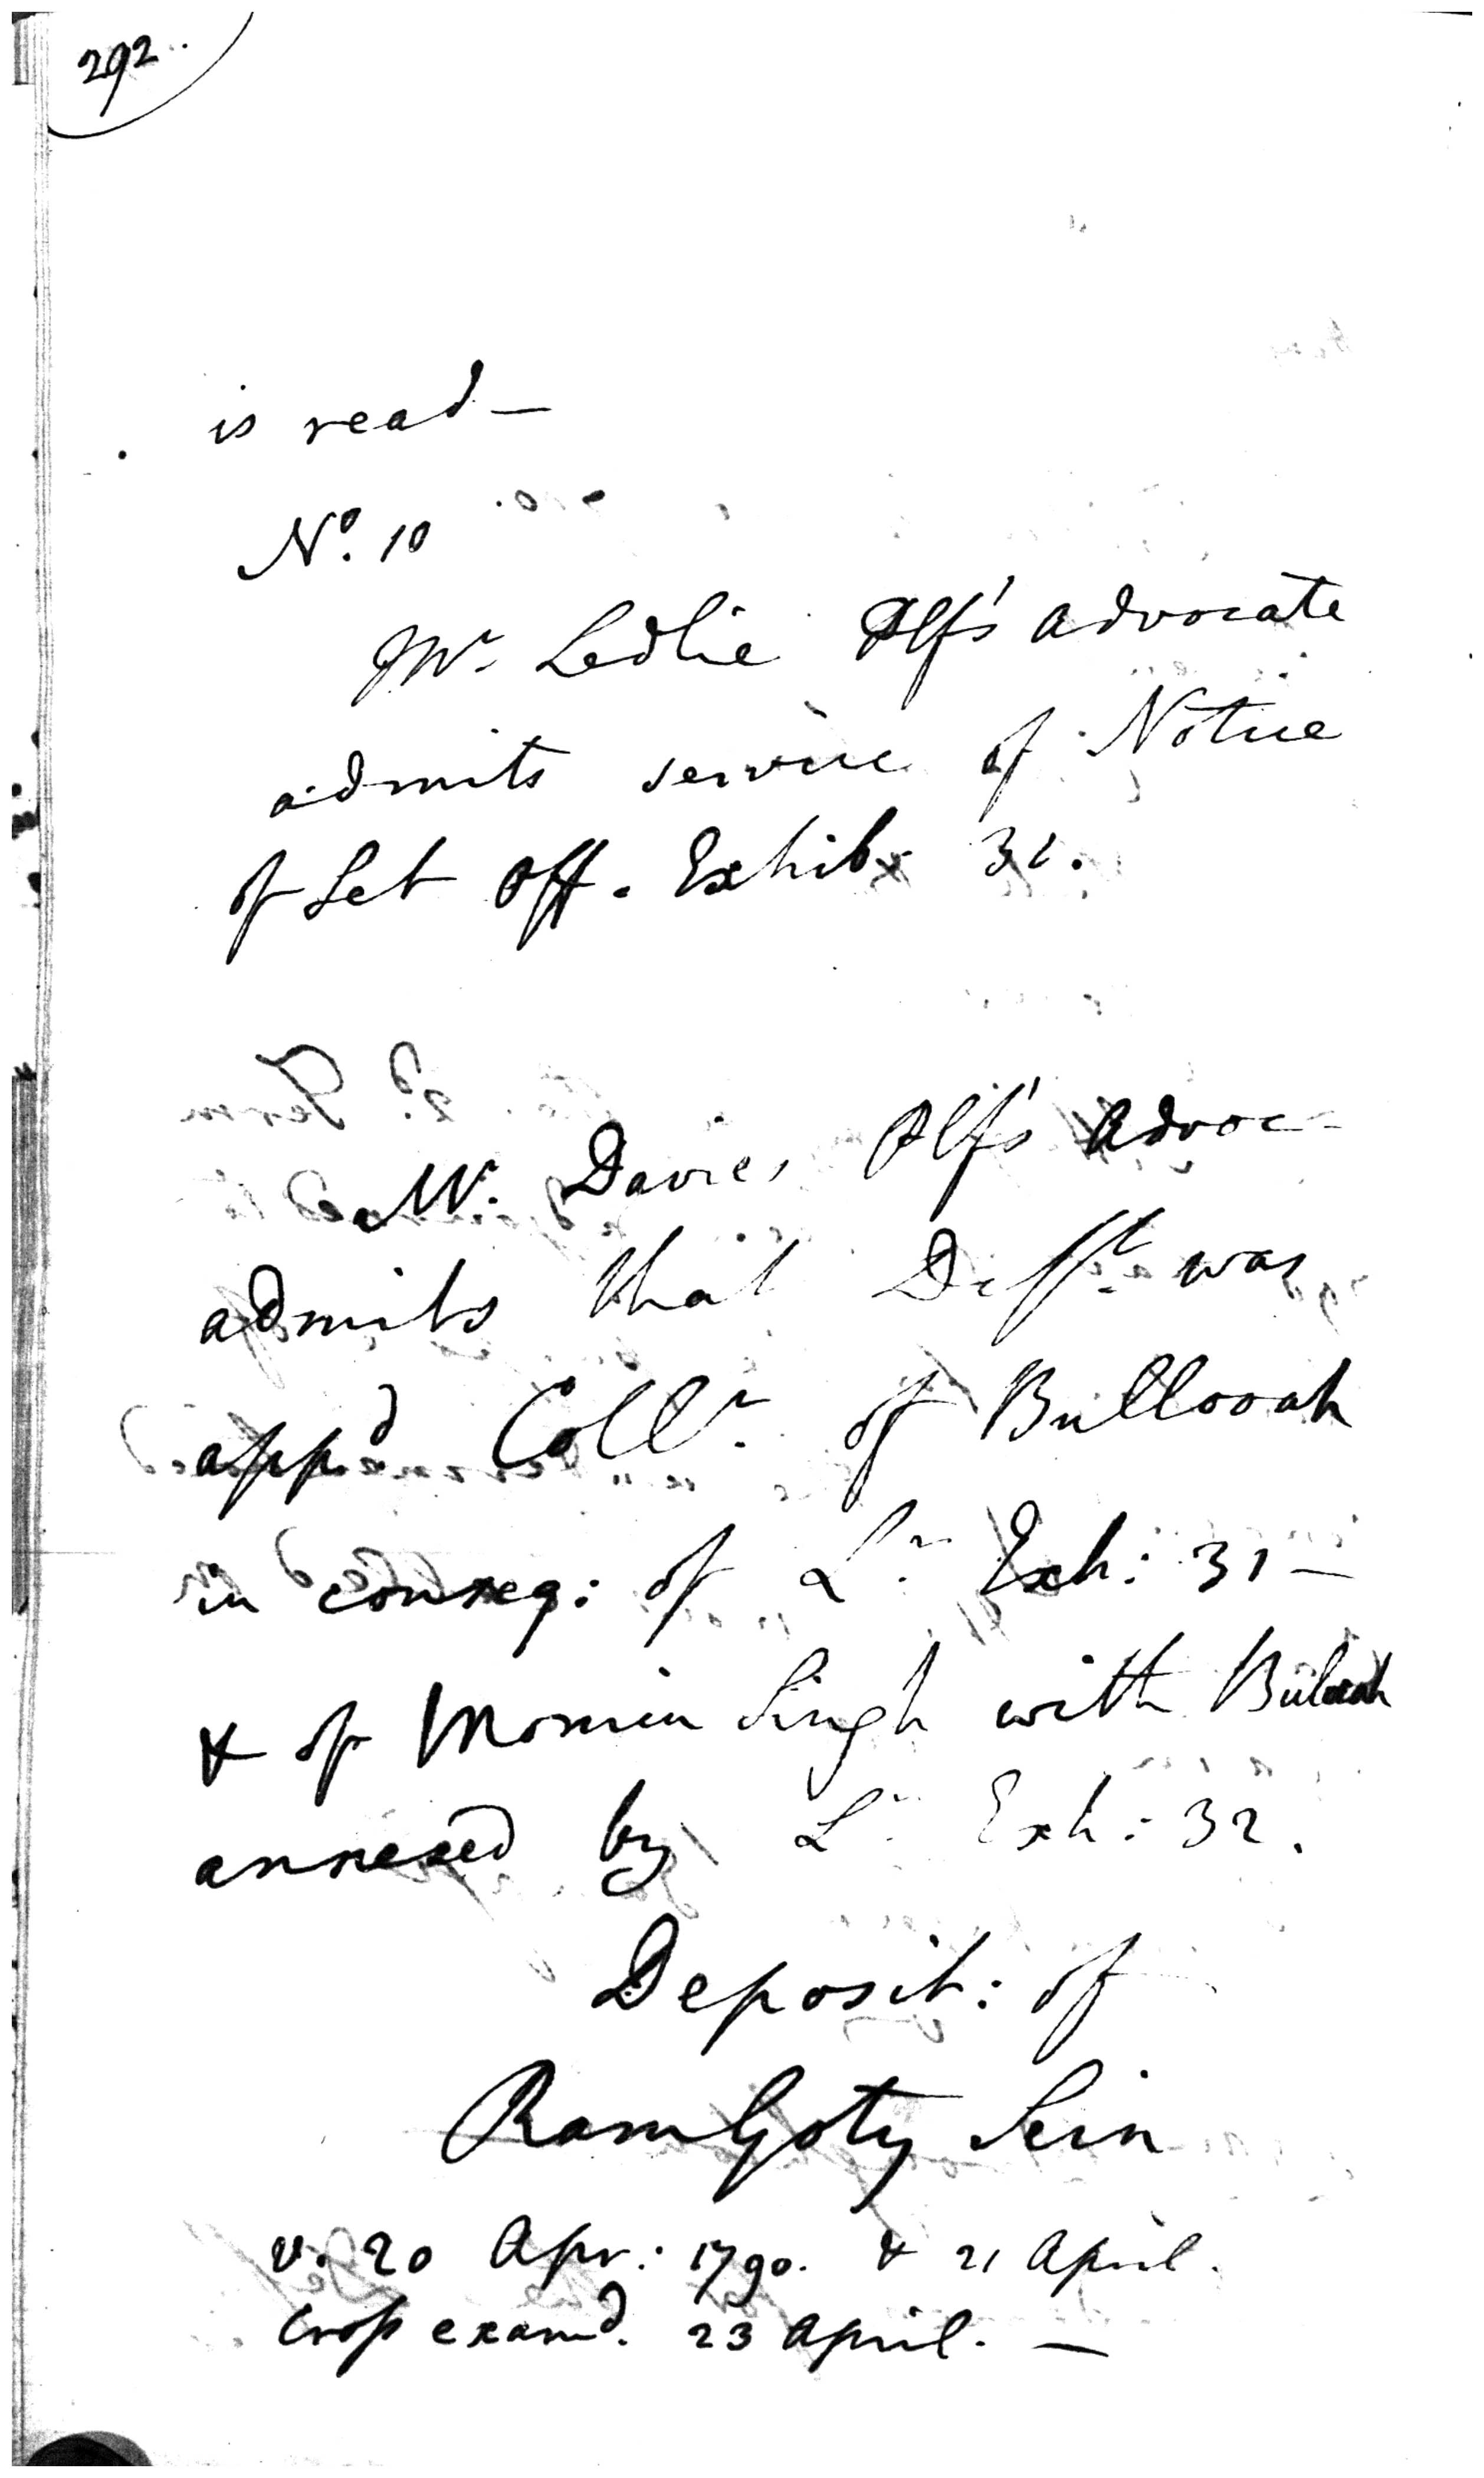 292
is read —
No. 10
Mr. Ledlie Plf's advocate
admits service of Notice
of Set Off. Exhib. 31.
Mr. Davies Plf's Advoc
admits that Deft. was
appd Collr. of Bullooah
in conseq: of Lr. Exh: 31 —
& of Momin Singh with Bulooah
annexed by Lr. Exh: 32.
Deposit: of
RamGoty Sein
v. 20 Apr.: 1790. & 21 April.
Cross examd. 23 April. —